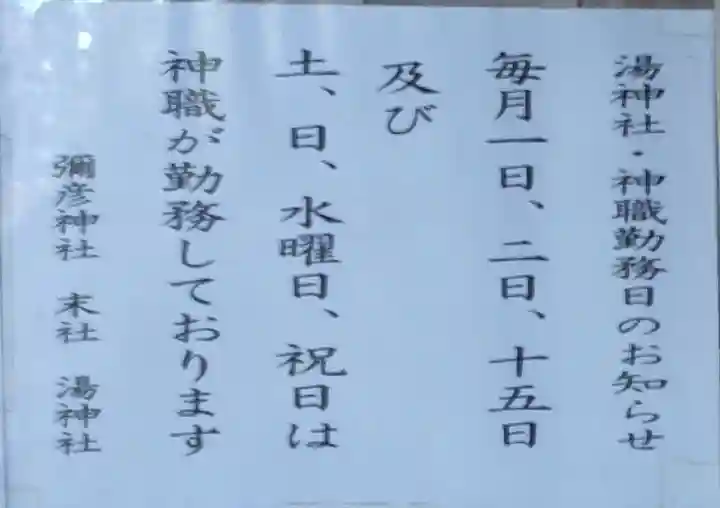 湯神社・神職勤務日のお知らせ
毎月一日、二日、十五日
及び
土、日、水曜日、祝日は
神職が勤務しております
彌彦神社 末社 湯神社